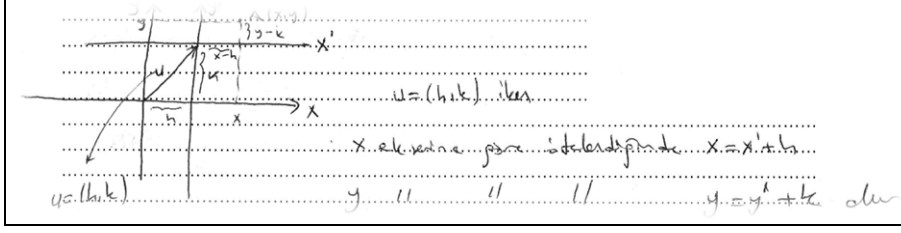 y A(x,y)
} y-k
x'
x-h
u k
u=(h,k) iken
h x x
x eksenine göre ötelendiğinde x=x'+h
u=(h,k) y // // // y=y'+k olur